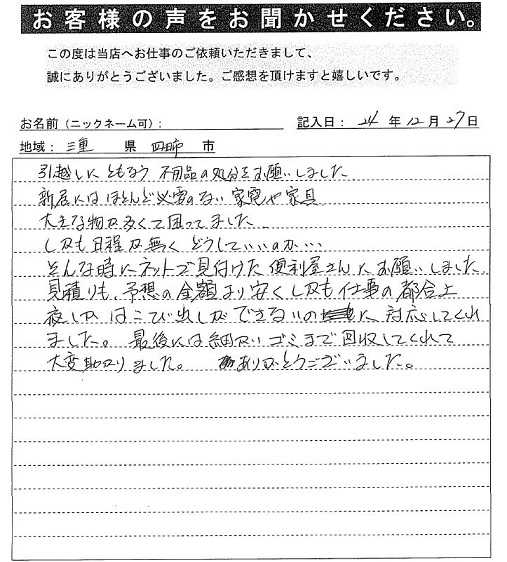 お客様の声をお聞かせください。
この度は当店へお仕事のご依頼いただきまして、
誠にありがとうございました。ご感想を頂けますと嬉しいです。
お名前（ニックネーム可）： 記入日： 24 年 12 月 27 日
地域： 三重 県 四日市 市
引越しにともなう 不用品の処分をお願いしました
新居には ほとんど必要のない 家電や家具
大きな物が多くて困ってました。
しかも日程が無く どうしていいのか…
そんな時にネットで見付けた便利屋さんにお願いしました
見積りも、予想の金額より安く しかも仕事の都合上
夜しか はこび出しができないのに 対応してくれ
ました。 最後には細かいゴミまで回収してくれて
大変助かりました。 ありがとうございました。